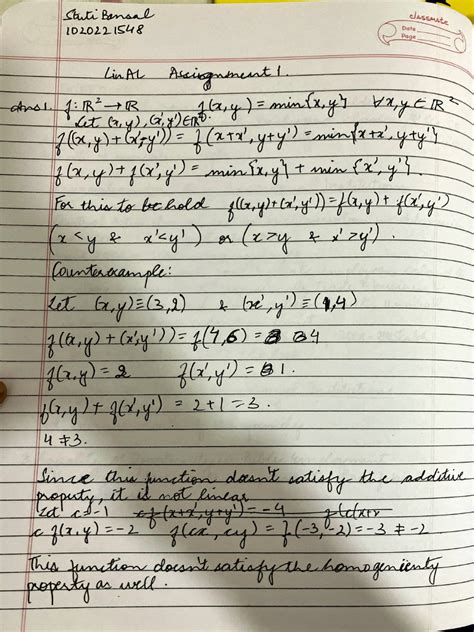 Stuti Bansal
1020221548
classmate
Date
Page
LinAL Assignment 1.
Ans1. f: ℝ² → ℝ f(x,y) = min{x,y} ∀x,y ∈ ℝ²
Let (x,y), (x',y') ∈ ℝ².
f((x,y) + (x',y')) = f(x+x', y+y') = min{x+x', y+y'}
f(x,y) + f(x',y') = min{x,y} + min{x',y'}.
For this to hold f((x,y)+(x',y')) = f(x,y) + f(x',y')
(x < y & x' < y') or (x > y & x' > y').
Counterexample:
Let (x,y) ≡ (3,2) & (x',y') ≡ (1,4)
f((x,y) + (x',y')) = f(4,6) = 4
f(x,y) = 2 f(x',y') = 1.
f(x,y) + f(x',y') = 2+1 = 3.
4 ≠ 3.
Since this function doesn't satisfy the additive
property, it is not linear
Let c = -1 cf(x+x', y+y') = -4 f(c(x+x
c f(x,y) = -2 f(cx, cy) = f(-3,-2) = -3 ≠ -2
This function doesn't satisfy the homogenienty
property as well.